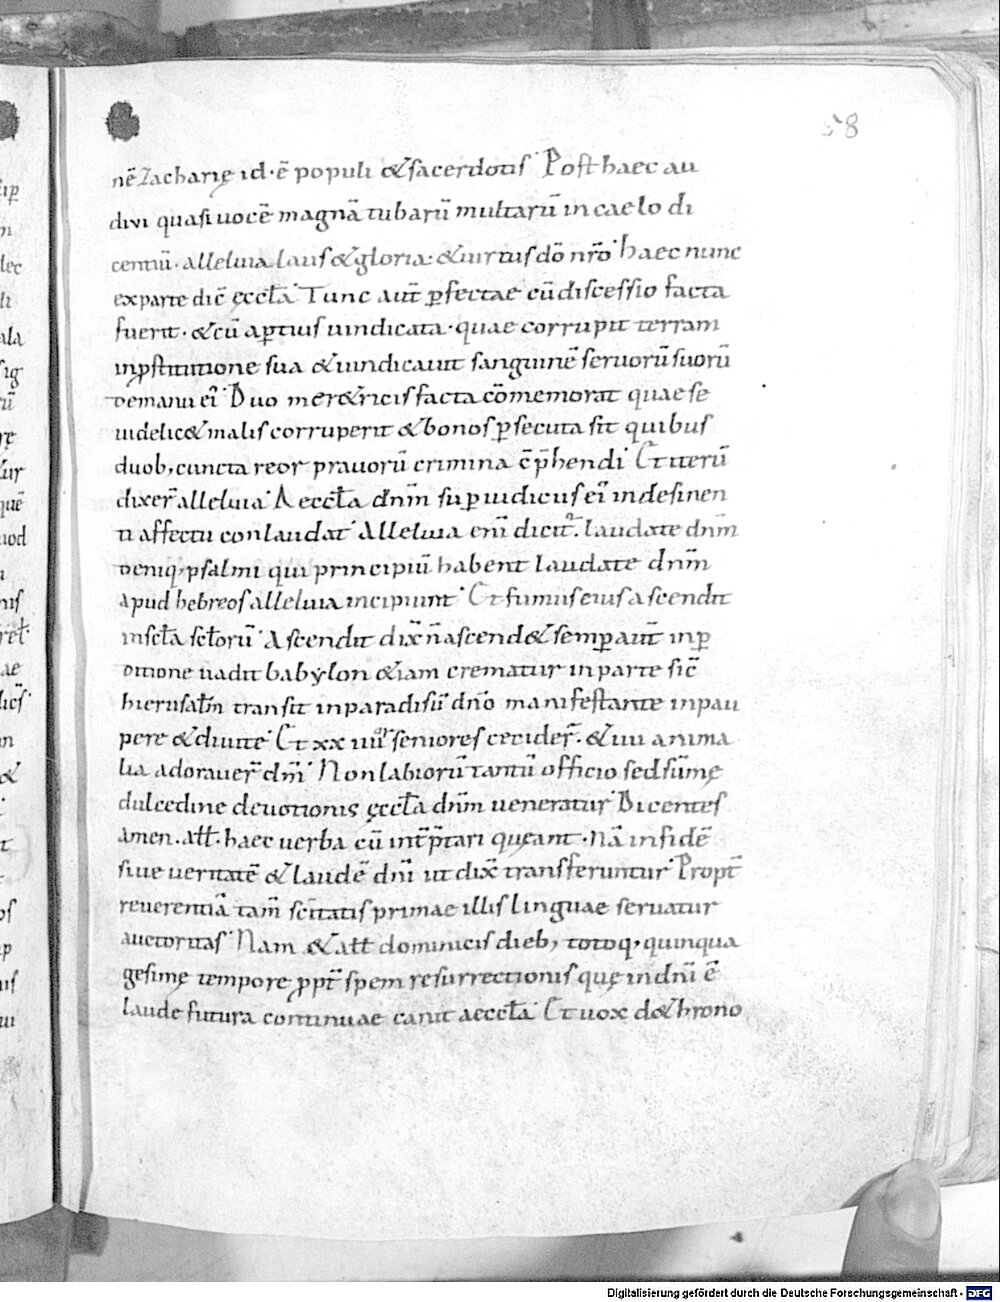 58
nē Zacharię id·ē populi &sacerdotis Post haec au
divi quasi uocē magnā tubarū multarū in caelo di
centiū· alleluia laus & gloria· & uirtus dō nr̄o haec nunc
ex parte dic̄ ęccłā Tunc aut̄ ꝑfectae cū discessio facta
fuerit· & cū aꝑtius uindicata· quae corrupit terram
inꝓstitutione sua & uindicauit sanguinē seruorū suorū
de manu ei᷒ Duo mer&ricis facta cōmemorat quae se
uidelic& malis corruperit & bonos ꝑsecuta sit quibus
duob; cuncta reor prauorū crimina c̄p̄hendi Et iterū
dixer̄ alleluia Aeccłā dn̄m suꝑ iudiciis ei᷒ indesinen
ti affectu conlaudat Alleluia eni᷒ dicit᷒. laudate dn̄m
deniq; psalmi qui principiū habent laudate dn̄m
apud hebreos alleluia incipiunt Et fumus eius ascendit
in sc̄ła scłorū Ascendit dix̄ n̄ ascend& semꝑ aut̄ inꝑ
ditione uadit babylon & iam crematur in parte sic̄
hierusałm transit in paradisū dn̄o manifestante in pau
pere & diuite Et xx iiiior seniores cecider̄. & iiii anima
lia adorauer̄ dm̄ Non labiorū tantū officio sed sūmę
dulcedine deuotionis ęccłā dn̄m ueneratur Dicentes
amen. ałł. haec uerba cū int̄p̄tari queant· nā in fidē
siue ueritatē & laudē dn̄i ut dix̄ transferuntur Propt̄
reuerentiā tam̄ sc̄itatis primae illis linguae seruatur
auctoritas Nam & ałł dominicis dieb; totoq; quinqua
gesimę tempore ꝓpt̄ spem resurrectionis quę in dn̄i ē
laude futura continuae canit aeccłā Et uox de throno
Digitalisierung gefördert durch die Deutsche Forschungsgemeinschaft - DFG